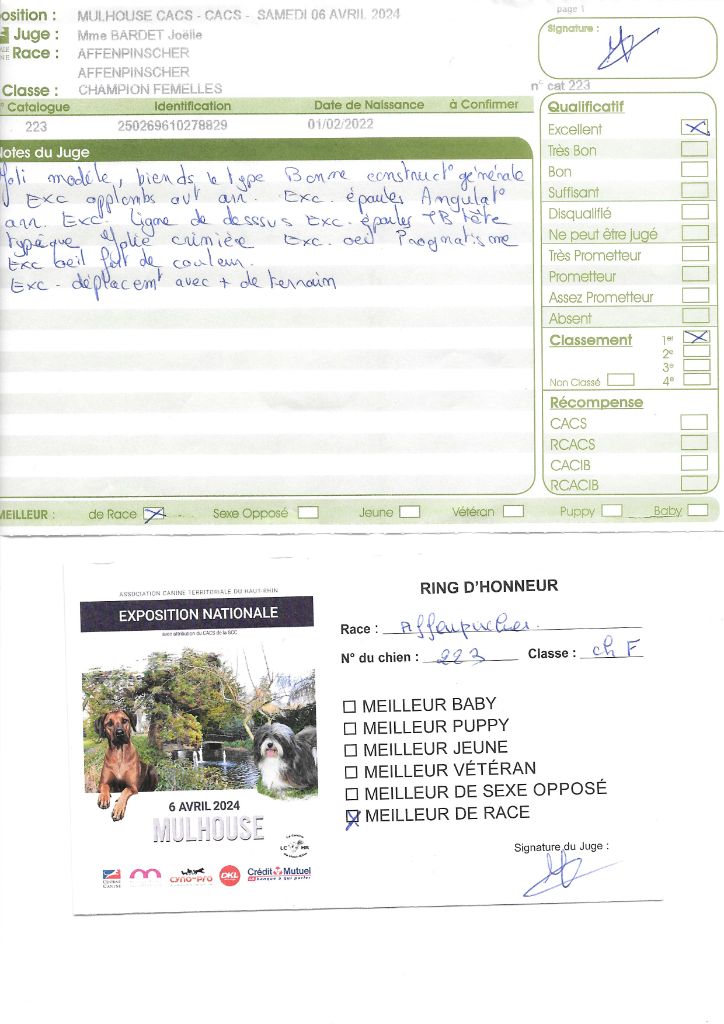 osition : MULHOUSE CACS - CACS - SAMEDI 06 AVRIL 2024
page 1
Juge : Mme BARDET Joëlle
Signature :
Race : AFFENPINSCHER
AFFENPINSCHER
Classe : CHAMPION FEMELLES
n° cat 223
° Catalogue Identification Date de Naissance à Confirmer
223 250269610278829 01/02/2022
Notes du Juge
Joli modèle, bien ds le type Bonne construct° générale
Exc applombs avt arr. Exc. épaules Angulat°
arr. Exc. ligne de desssus Exc. épaules TB tête
typique Jolie crinière Exc. oeil Prognatisme
Exc oeil fort de couleur.
Exc. déplacemt avec + de terrain
Qualificatif
Excellent
Très Bon
Bon
Suffisant
Disqualifié
Ne peut être jugé
Très Prometteur
Prometteur
Assez Prometteur
Absent
Classement 1er
2e
3e
Non Classé 4e
Récompense
CACS
RCACS
CACIB
RCACIB
MEILLEUR : de Race Sexe Opposé Jeune Vétéran Puppy Baby
ASSOCIATION CANINE TERRITORIALE DU HAUT-RHIN
EXPOSITION NATIONALE
avec attribution du CACS de la SCC
6 AVRIL 2024
MULHOUSE
CENTRALE CANINE
CYNO-PRO
DKL
Crédit Mutuel
La banque à qui parler
RING D'HONNEUR
Race : Affenpincher.
N° du chien : 223 Classe : ch F
MEILLEUR BABY
MEILLEUR PUPPY
MEILLEUR JEUNE
MEILLEUR VÉTÉRAN
MEILLEUR DE SEXE OPPOSÉ
MEILLEUR DE RACE
Signature du Juge :